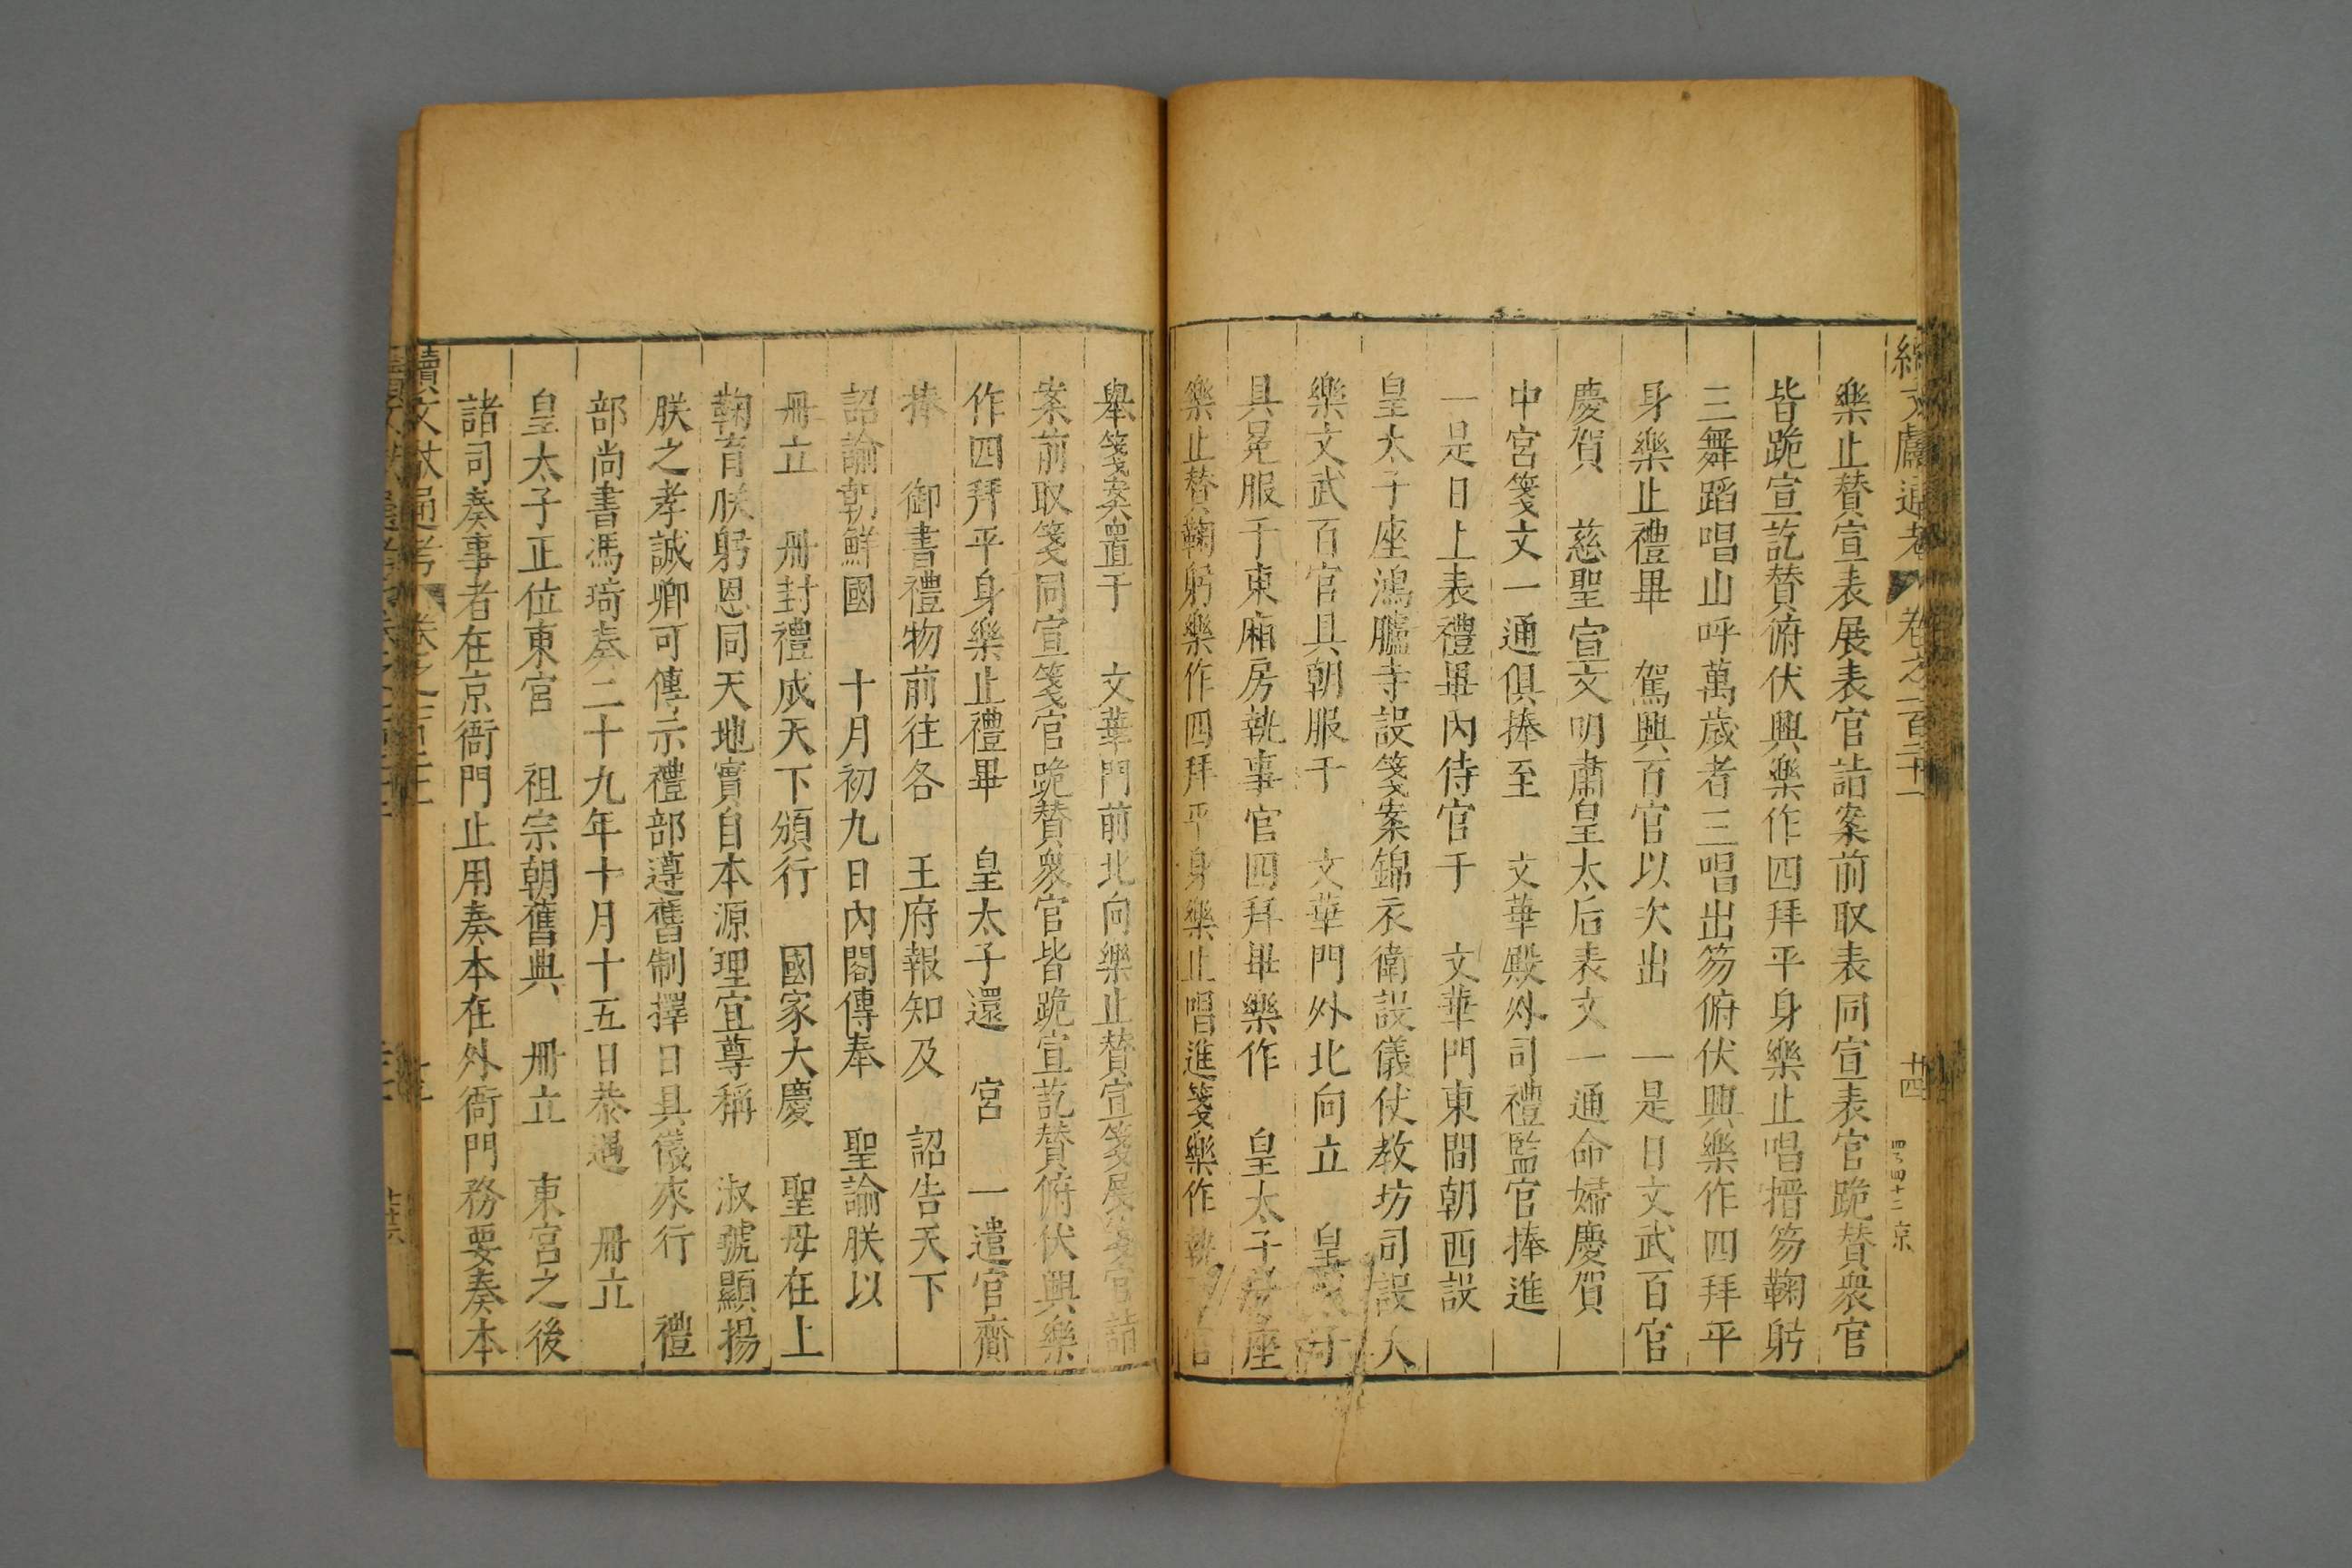 續文獻通考 卷之一百二十一 廿四
樂止贊宣表展表官詣案前取表同宣表官跪贊衆官
皆跪宣訖贊俯伏興樂作四拜平身樂止唱搢笏鞠躬
三舞蹈唱山呼萬歲者三唱出笏俯伏興樂作四拜平
身樂止禮畢 駕興百官以次出 一是日文武百官
慶賀 慈聖宣文明肅皇太后表文一通命婦慶賀
中宮箋文一通俱捧至 文華殿外司禮監官捧進
一是日上表禮畢內侍官于 文華門東間朝西設
皇太子座鴻臚寺設箋案錦衣衛設儀仗教坊司設大
樂文武百官具朝服于 文華門外北向立 皇太子
具冕服于東廂房執事官四拜畢樂作 皇太子座
樂止贊鞠躬樂作四拜平身樂止唱進箋樂作執 官
舉箋案置于 文華門前北向樂止贊宣箋展箋官詣
案前取箋同宣箋官跪贊衆官皆跪宣訖贊俯伏興樂
作四拜平身樂止禮畢 皇太子還 宮 一遣官齎
捧 御書禮物前往各 王府報知及 詔告天下
詔諭朝鮮國 十月初九日內閣傳奉 聖諭朕以
冊立 冊封禮成天下頒行 國家大慶 聖母在上
鞠育朕躬恩同天地實自本源理宜尊稱 淑號顯揚
朕之孝誠卿可傳示禮部遵舊制擇日具儀來行 禮
部尚書馮琦奏二十九年十月十五日恭遇 冊立
皇太子正位東宮 祖宗朝舊典 冊立 東宮之後
諸司奏事者在京衙門止用奏本在外衙門務要奏本
續文獻通考